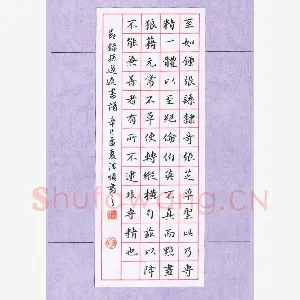 至如鍾繇隸奇張芝草聖此乃專
精一體以至絕倫伯英不真而點畫
狼藉元常不草使轉縱橫自茲以降
不能兼善者有所不逮非專精也
節錄孫過庭書譜辛巳孟夏
Shufawang.CN